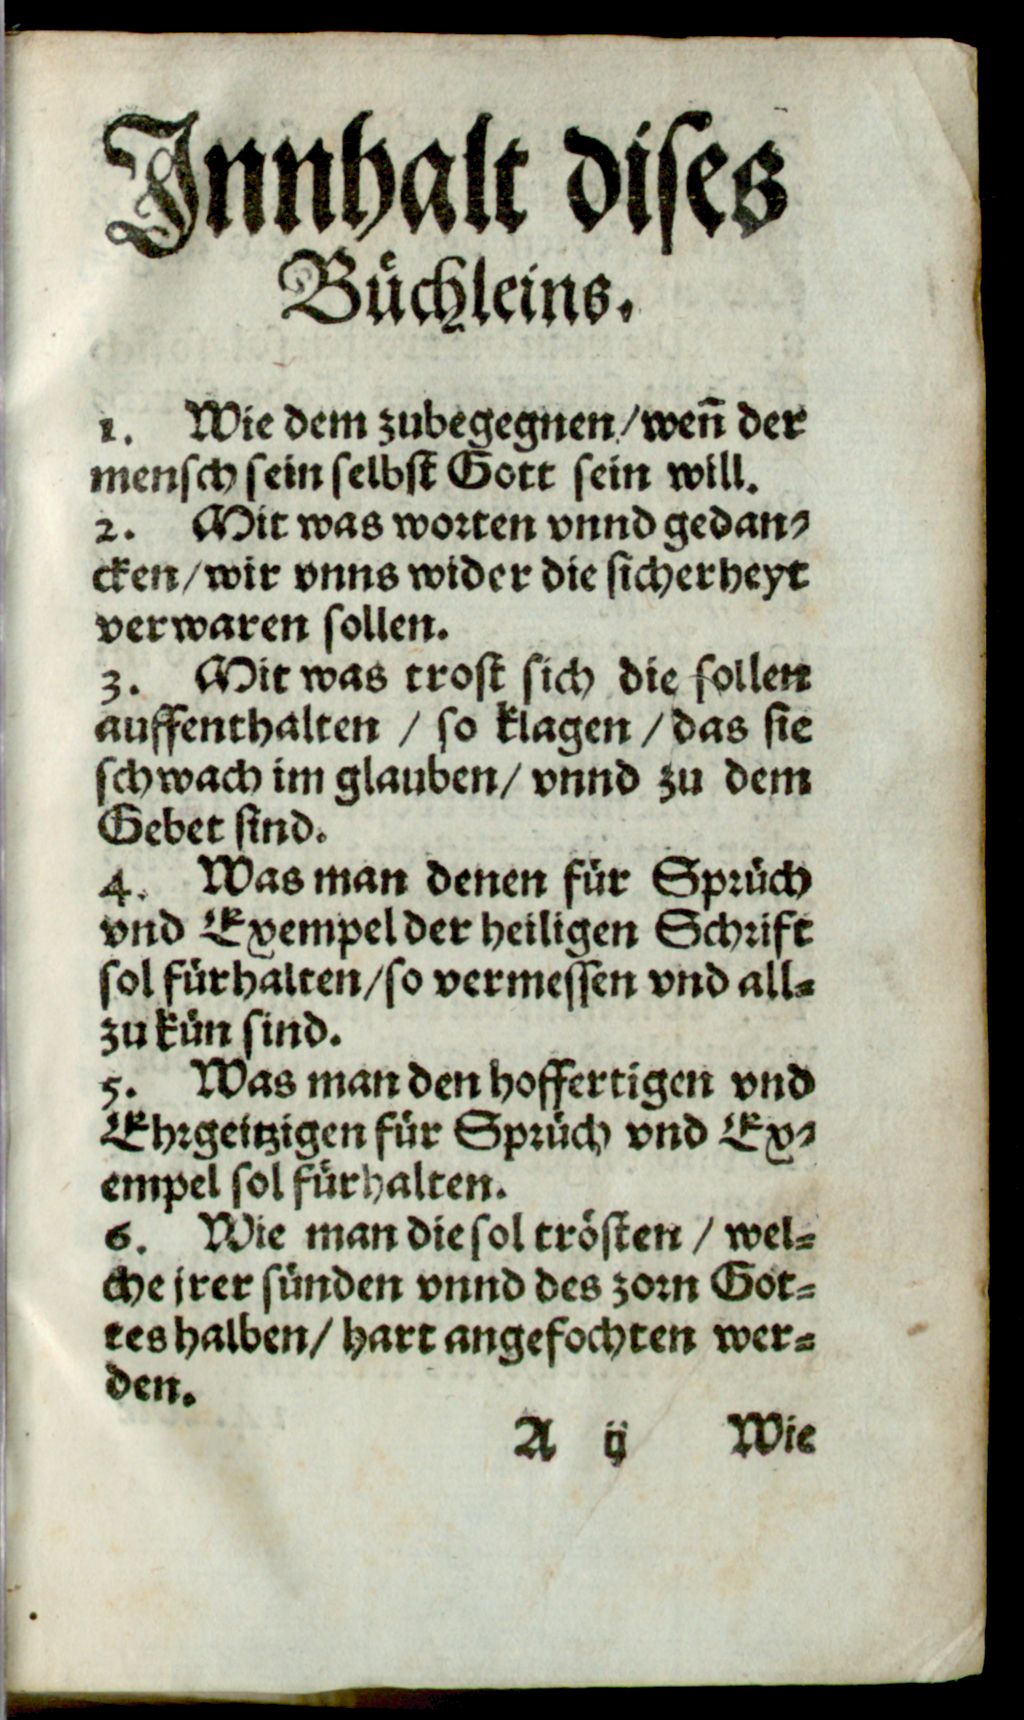 Innhalt dises
Büchleins.
1. Wie dem zubegegnen/wen̄ der
mensch sein selbst Gott sein will.
2. Mit was worten vnnd gedan-
cken/wir vnns wider die sicherheyt
verwaren sollen.
3. Mit was trost sich die sollen
auffenthalten / so klagen / das sie
schwach im glauben/ vnnd zu dem
Gebet sind.
4. Was man denen für Sprüch
vnd Exempel der heiligen Schrift
sol fürhalten/so vermessen vnd all-
zu kün sind.
5. Was man den hoffertigen vnd
Ehrgeitzigen für Sprüch vnd Ex-
empel sol fürhalten.
6. Wie man die sol trösten / wel-
che jrer sünden vnnd des zorn Got-
tes halben/ hart angefochten wer-
den.
A ij Wie